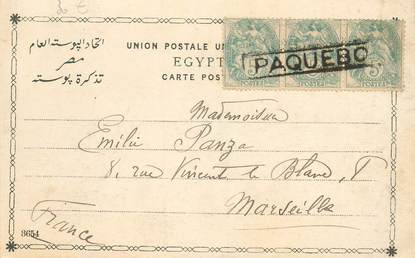 اتحاد البوسته العام
مصر
تذكرة بوسته
UNION POSTALE UN
EGYPT
CARTE POST
PAQUEBO
5 5 5
POSTES POSTES POSTES
Mademoiselle
Emilie Panza
8, rue Vincent le Blanc, 8
Marseille
France
3654